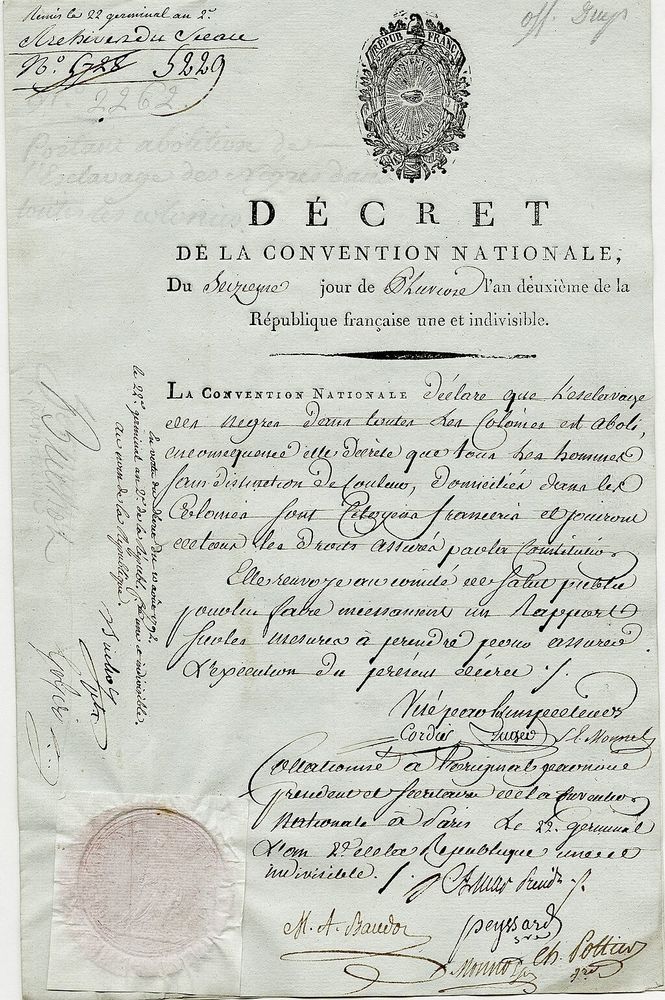 Remis le 22 germinal an 2.e
Archives du Sceau
N.o 5228 5229
off. Guys
N.o 2262.
Portant abolition de
l'Esclavage des Negres dans
toutes les colonies
RÉPUB. FRANÇ.
CONVENTION
NATIONALE
DÉCRET
DE LA CONVENTION NATIONALE,
Du Seizieme jour de Pluviose l'an deuxième de la
République française une et indivisible.
LA CONVENTION NATIONALE Déclare que l'esclavage
des negres dans toutes les Colonies est aboli,
en consequence elle décrete que tous les hommes
sans distinction de Couleur, domiciliés dans les
Colonies sont Citoyens français et jouiront
de tous les droits assurés par la Constitution
Elle renvoye au comité de Salut public
pour lui faire incessament un Rapport
sur les mesures à prendre pour assurer
L'execution du présent décret ./.
Visé par les inspecteurs
Cordier Auger S.E. Monnel
Collationné à l'original par nous
président et Secretaires de la Convention
Nationale à Paris Le 22. germinal
L'an 2.e de la Republique une et
indivisible ./.
Amar Presid.t
M. A. Baudot
peyssard
s.re
Monnot
Ch. Pottier
s.re
En vertu du décret du 10 août 1792.
le 22.e germinal an 2.e de la Répub. f.se une et indivisible.
au nom de la République.
Buchot
Gohier